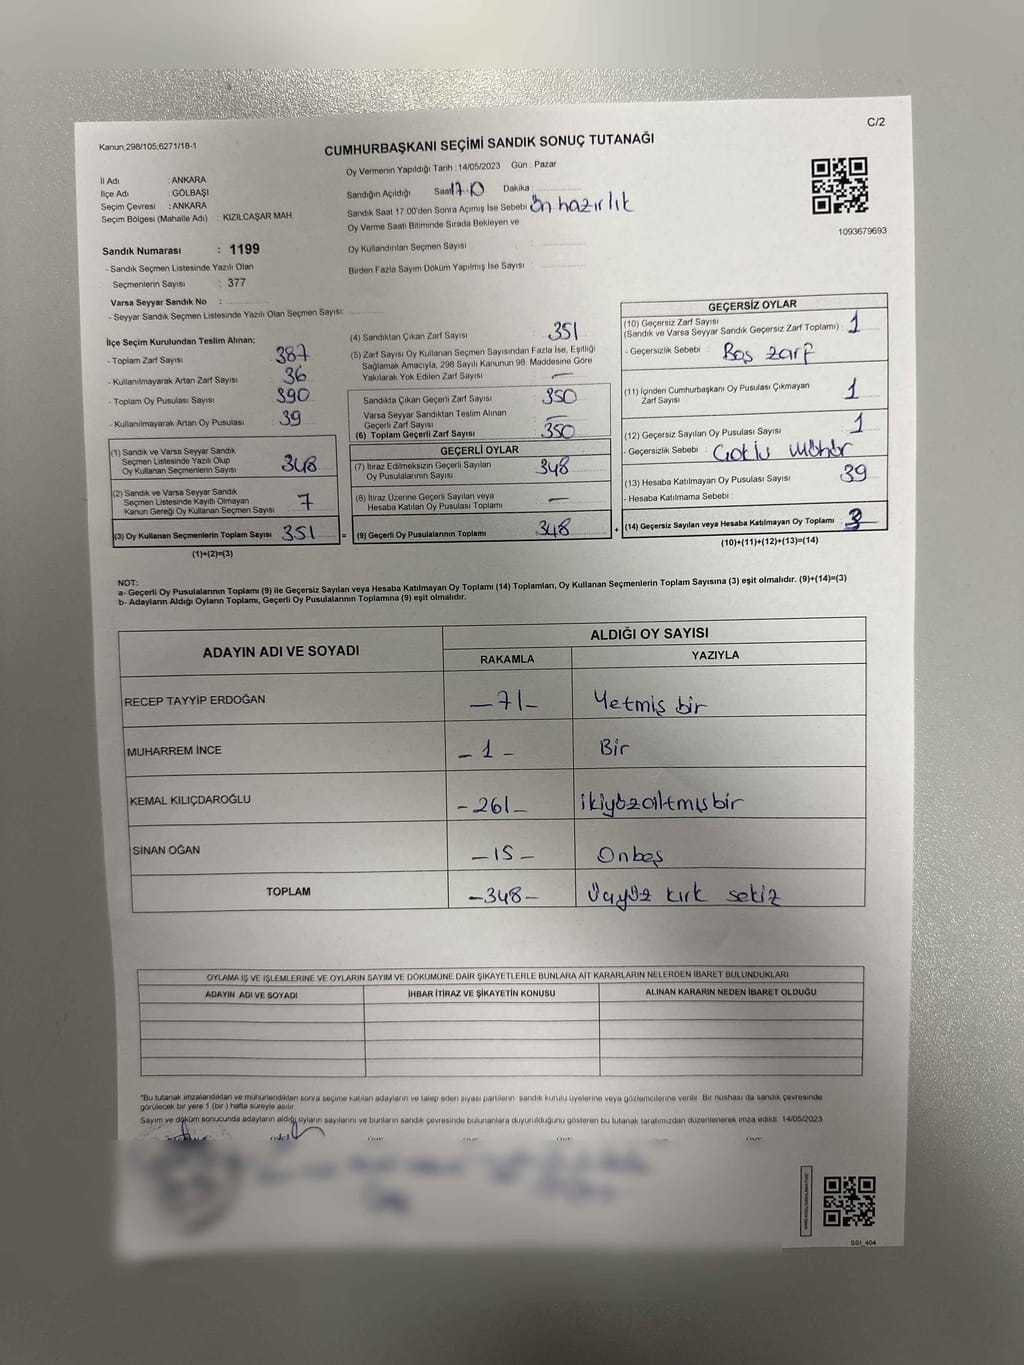 C/2
Kanun,298/105;6271/18-1
CUMHURBAŞKANI SEÇİMİ SANDIK SONUÇ TUTANAĞI
Oy Vermenin Yapıldığı Tarih : 14/05/2023 Gün : Pazar
İl Adı : ANKARA
İlçe Adı : GÖLBAŞI
Seçim Çevresi : ANKARA
Seçim Bölgesi (Mahalle Adı) : KIZILCAŞAR MAH.
Sandığın Açıldığı Saat Dakika :
Sandık Saat 17.00'den Sonra Açılmış İse Sebebi Ön hazırlık
Oy Verme Saati Bitiminde Sırada Bekleyen ve
Oy Kullandırılan Seçmen Sayısı :
Birden Fazla Sayım Döküm Yapılmış İse Sayısı :
1093679693
Sandık Numarası : 1199
- Sandık Seçmen Listesinde Yazılı Olan
Seçmenlerin Sayısı : 377
Varsa Seyyar Sandık No :
- Seyyar Sandık Seçmen Listesinde Yazılı Olan Seçmen Sayısı:
İlçe Seçim Kurulundan Teslim Alınan;
- Toplam Zarf Sayısı 387
- Kullanılmayarak Artan Zarf Sayısı 36
- Toplam Oy Pusulası Sayısı 390
- Kullanılmayarak Artan Oy Pusulası 39
(1) Sandık ve Varsa Seyyar Sandık
Seçmen Listesinde Yazılı Olup
Oy Kullanan Seçmenlerin Sayısı 348
(2) Sandık ve Varsa Seyyar Sandık
Seçmen Listesinde Kayıtlı Olmayan
Kanun Gereği Oy Kullanan Seçmen Sayısı 7
(3) Oy Kullanan Seçmenlerin Toplam Sayısı 351 =
(1)+(2)=(3)
(4) Sandıktan Çıkan Zarf Sayısı 351
(5) Zarf Sayısı Oy Kullanan Seçmen Sayısından Fazla İse, Eşitliği
Sağlamak Amacıyla, 298 Sayılı Kanunun 98. Maddesine Göre
Yakılarak Yok Edilen Zarf Sayısı —
Sandıkta Çıkan Geçerli Zarf Sayısı 350
Varsa Seyyar Sandıktan Teslim Alınan
Geçerli Zarf Sayısı —
(6) Toplam Geçerli Zarf Sayısı 350
GEÇERLİ OYLAR
(7) İtiraz Edilmeksizin Geçerli Sayılan
Oy Pusulalarının Sayısı 348
(8) İtiraz Üzerine Geçerli Sayılan veya
Hesaba Katılan Oy Pusulası Toplamı —
(9) Geçerli Oy Pusulalarının Toplamı 348 +
GEÇERSİZ OYLAR
(10) Geçersiz Zarf Sayısı
(Sandık ve Varsa Seyyar Sandık Geçersiz Zarf Toplamı) : 1
- Geçersizlik Sebebi : Boş zarf
(11) İçinden Cumhurbaşkanı Oy Pusulası Çıkmayan
Zarf Sayısı 1
(12) Geçersiz Sayılan Oy Pusulası Sayısı 1
- Geçersizlik Sebebi : Çoklu mühür
(13) Hesaba Katılmayan Oy Pusulası Sayısı 39
- Hesaba Katılmama Sebebi :
(14) Geçersiz Sayılan veya Hesaba Katılmayan Oy Toplamı 3
(10)+(11)+(12)+(13)=(14)
NOT:
a- Geçerli Oy Pusulalarının Toplamı (9) ile Geçersiz Sayılan veya Hesaba Katılmayan Oy Toplamı (14) Toplamları, Oy Kullanan Seçmenlerin Toplam Sayısına (3) eşit olmalıdır. (9)+(14)=(3)
b- Adayların Aldığı Oyların Toplamı, Geçerli Oy Pusulalarının Toplamına (9) eşit olmalıdır.
ADAYIN ADI VE SOYADI
ALDIĞI OY SAYISI
RAKAMLA YAZIYLA
RECEP TAYYİP ERDOĞAN –71– Yetmiş bir
MUHARREM İNCE –1– Bir
KEMAL KILIÇDAROĞLU –261– ikiyüzaltmışbir
SİNAN OĞAN –15– Onbeş
TOPLAM –348– Üçyüz kırk sekiz
OYLAMA İŞ VE İŞLEMLERİNE VE OYLARIN SAYIM VE DÖKÜMÜNE DAİR ŞİKAYETLERLE BUNLARA AİT KARARLARIN NELERDEN İBARET BULUNDUKLARI
ADAYIN ADI VE SOYADI İHBAR İTİRAZ VE ŞİKAYETİN KONUSU ALINAN KARARIN NEDEN İBARET OLDUĞU
"Bu tutanak imzalandıktan ve mühürlendikten sonra seçime katılan adayların ve talep eden siyasi partilerin sandık kurulu üyelerine veya gözlemcilerine verilir. Bir nüshası da sandık çevresinde
görülecek bir yere 1 (bir) hafta süreyle asılır.
Sayım ve döküm sonucunda adayların aldığı oyların sayılarını ve bunların sandık çevresinde bulunanlara duyurulduğunu gösteren bu tutanak tarafımızdan düzenlenerek imza edildi. 14/05/2023
SSI_404